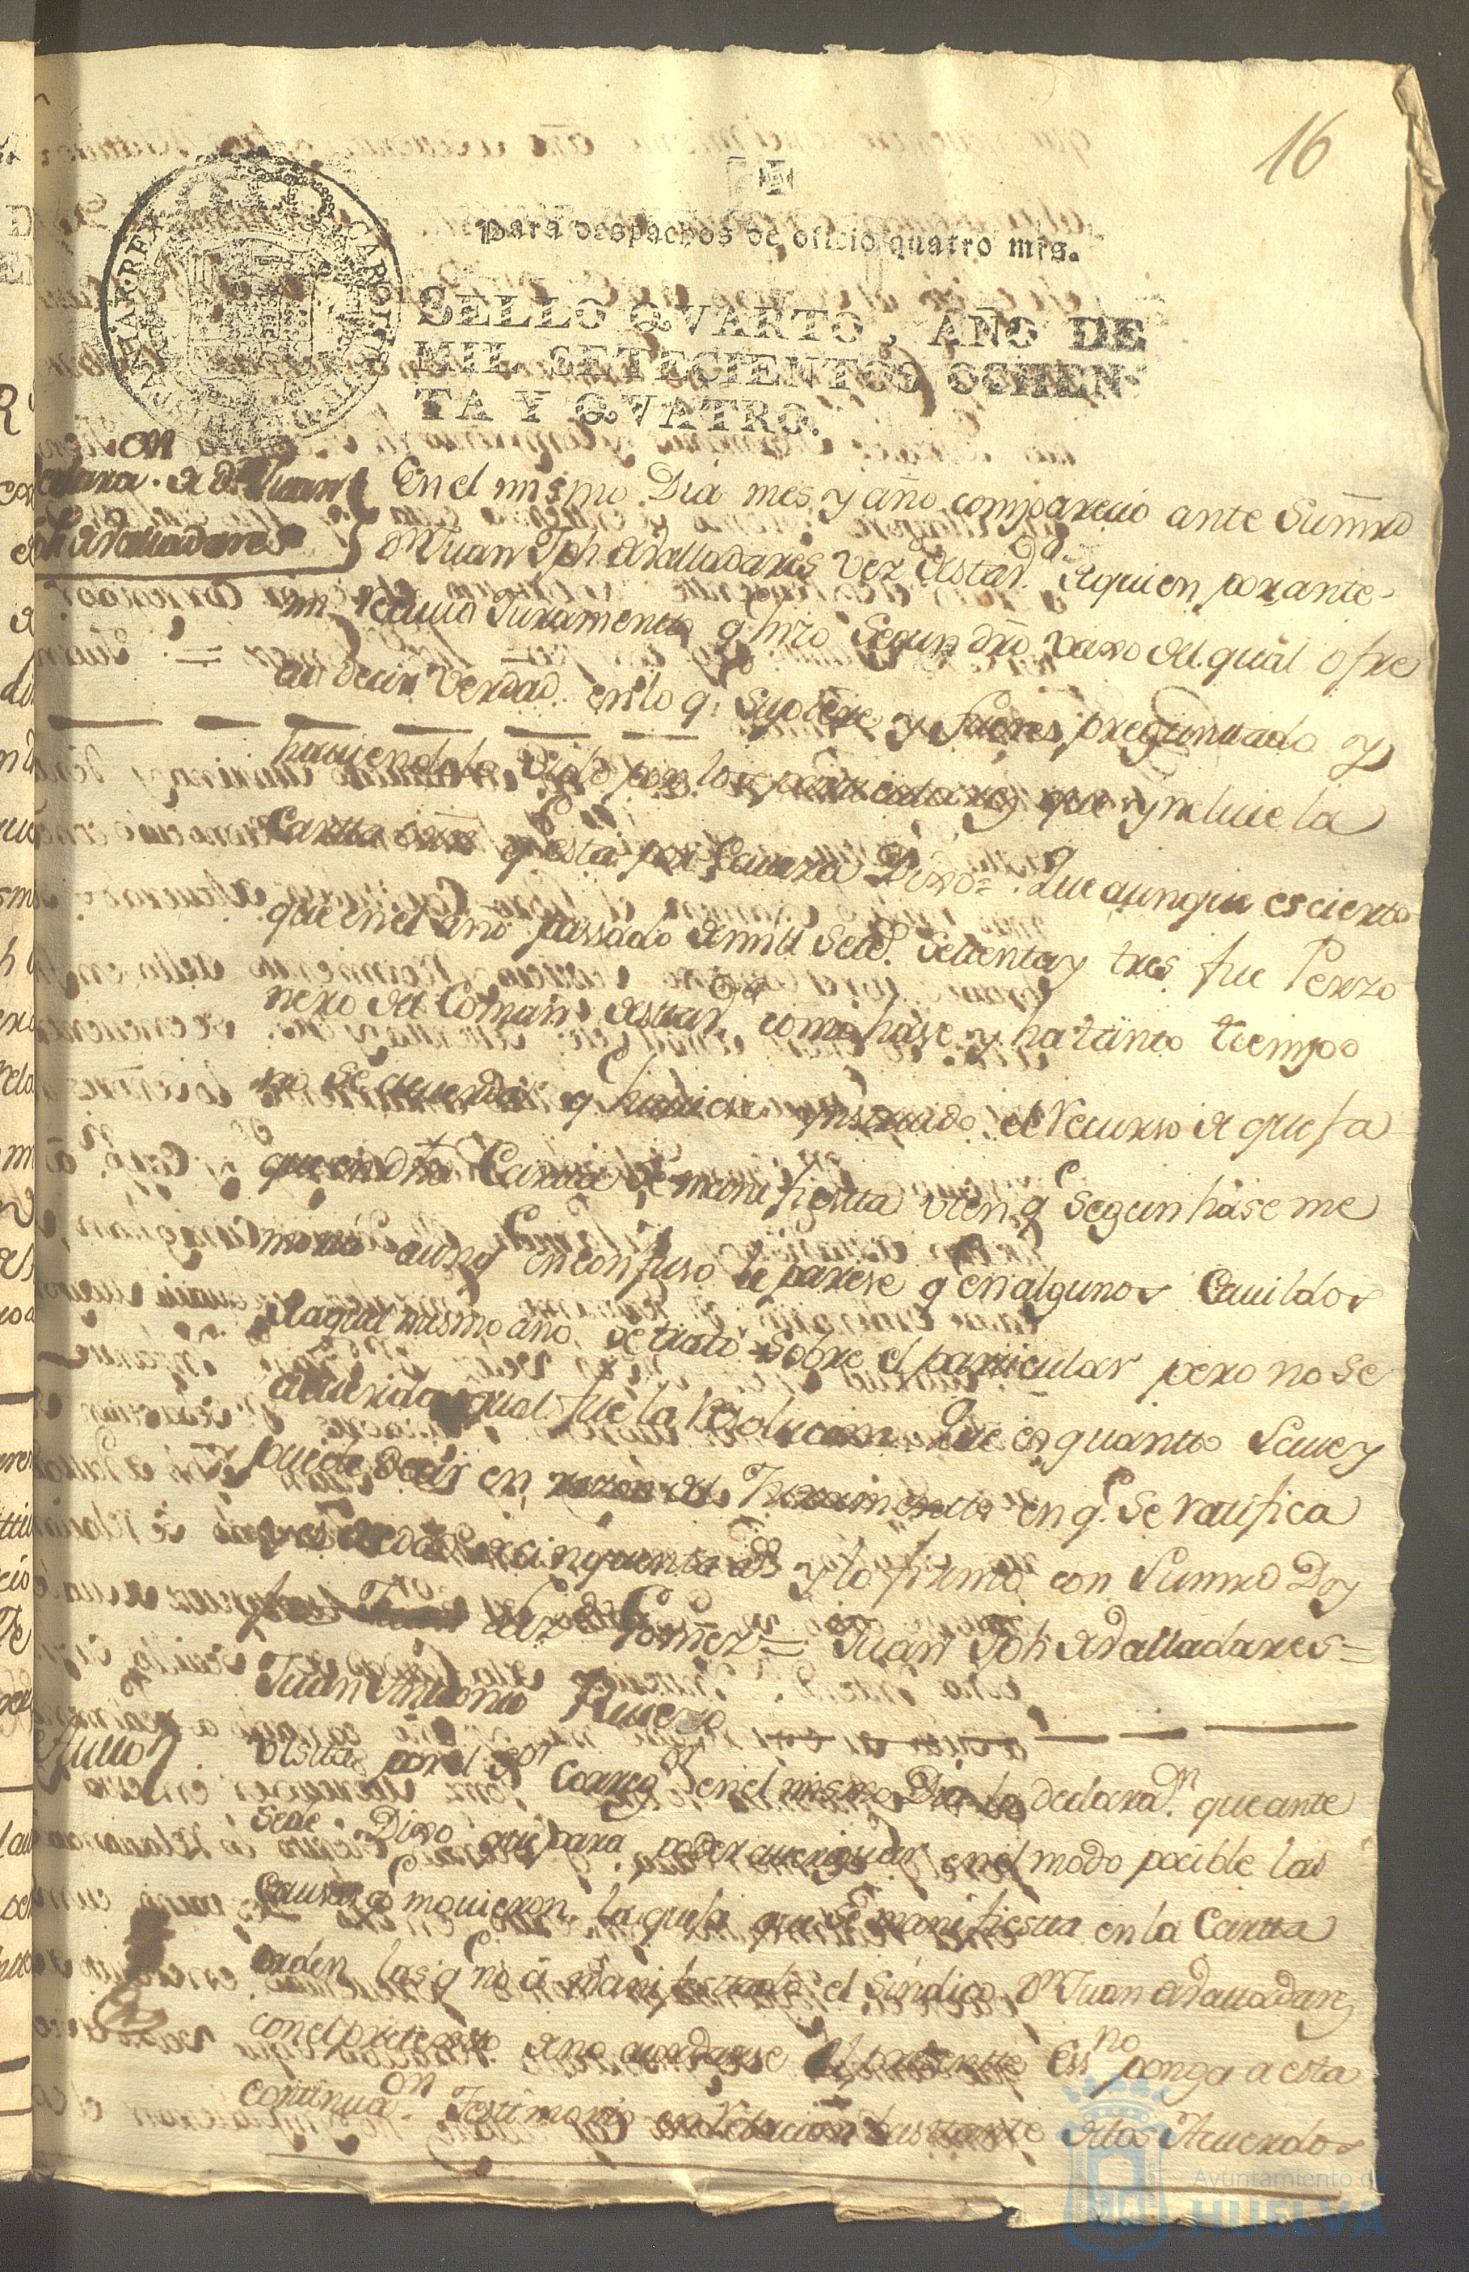 16
Para despachos de oficio quatro mrs.
SELLO QVARTO, AÑO DE
MIL SETECIENTOS OCHEN-
TA Y QVATRO.
CAROLUS III D G HISPANIAR REX
Declaraon. de Dn. Juan
Jph de Valladares
En el mismo Dia mes y año comparecio ante Sumrd
Dn Juan Jph de Valladares vezo. de esta Va. de quien por ante
mi recivio Juramento q hizo segun dro vaxo del qual ofre
cio decir verdad en lo q. supiere y fuere preguntado y
haviendolo sido por los particulares que yncluie la
Cartta orn q esta por Caveza Dixo= Que aunque es cierto
que en el año passado de mill setes. settenta y tres fue Perzo
nero del Comun de esta Va como hase ya tanto tiempo
no se acuerda q huviese ynstruido el recurso de quexa
que en dha Cartta se manifiestta vien q segun hase me
moria aunq en confuso le parese q en algunos Cavildos
de aquel mismo año se trato sobre el particular pero no se
acuerda qual fue la resolucion. Que es quantto save y
puede decir en razon del Juramentto en q. se ratifica
es de edad de cinquenta as y lo firmo con Sumrd Doy
fee Lizdo Gomez = Juan Jph de Valladares =
Juan Antonio Rivero
Autto
Vistas por el Sor Corregor en el mismo Dia la declaran. que ante
sede Dixo que para poder averiguar en el modo pocible las
Causas q movieron la quexa que se manifiestta en la Cartta
orden las q no á manifesttado el Sindico Dn Juan de Valladares
con el pretexto de no acordarse el presentte Essno ponga a esta
continuaon Testimonio en relacion bastante de los Acuerdos
Ayuntamiento de
HUELVA